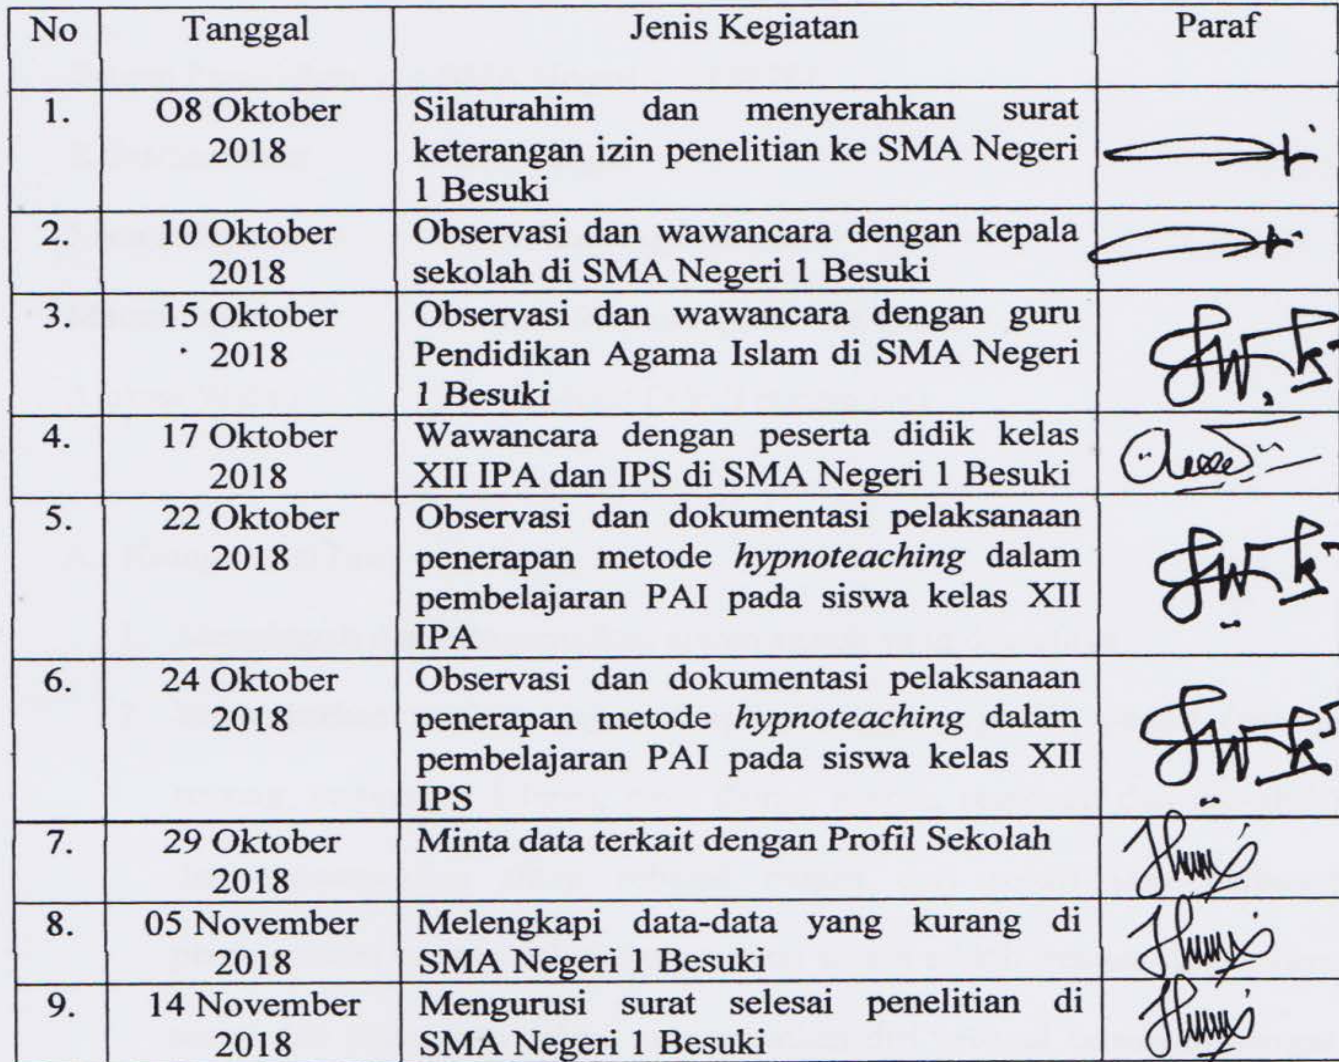 No Tanggal Jenis Kegiatan Paraf
1. O8 Oktober Silaturahim dan menyerahkan surat
2018 keterangan izin penelitian ke SMA Negeri
1 Besuki
2. 10 Oktober Observasi dan wawancara dengan kepala
2018 sekolah di SMA Negeri 1 Besuki
3. 15 Oktober Observasi dan wawancara dengan guru
2018 Pendidikan Agama Islam di SMA Negeri
1 Besuki
4. 17 Oktober Wawancara dengan peserta didik kelas
2018 XII IPA dan IPS di SMA Negeri 1 Besuki
5. 22 Oktober Observasi dan dokumentasi pelaksanaan
2018 penerapan metode hypnoteaching dalam
pembelajaran PAI pada siswa kelas XII
IPA
6. 24 Oktober Observasi dan dokumentasi pelaksanaan
2018 penerapan metode hypnoteaching dalam
pembelajaran PAI pada siswa kelas XII
IPS
7. 29 Oktober Minta data terkait dengan Profil Sekolah
2018
8. 05 November Melengkapi data-data yang kurang di
2018 SMA Negeri 1 Besuki
9. 14 November Mengurusi surat selesai penelitian di
2018 SMA Negeri 1 Besuki